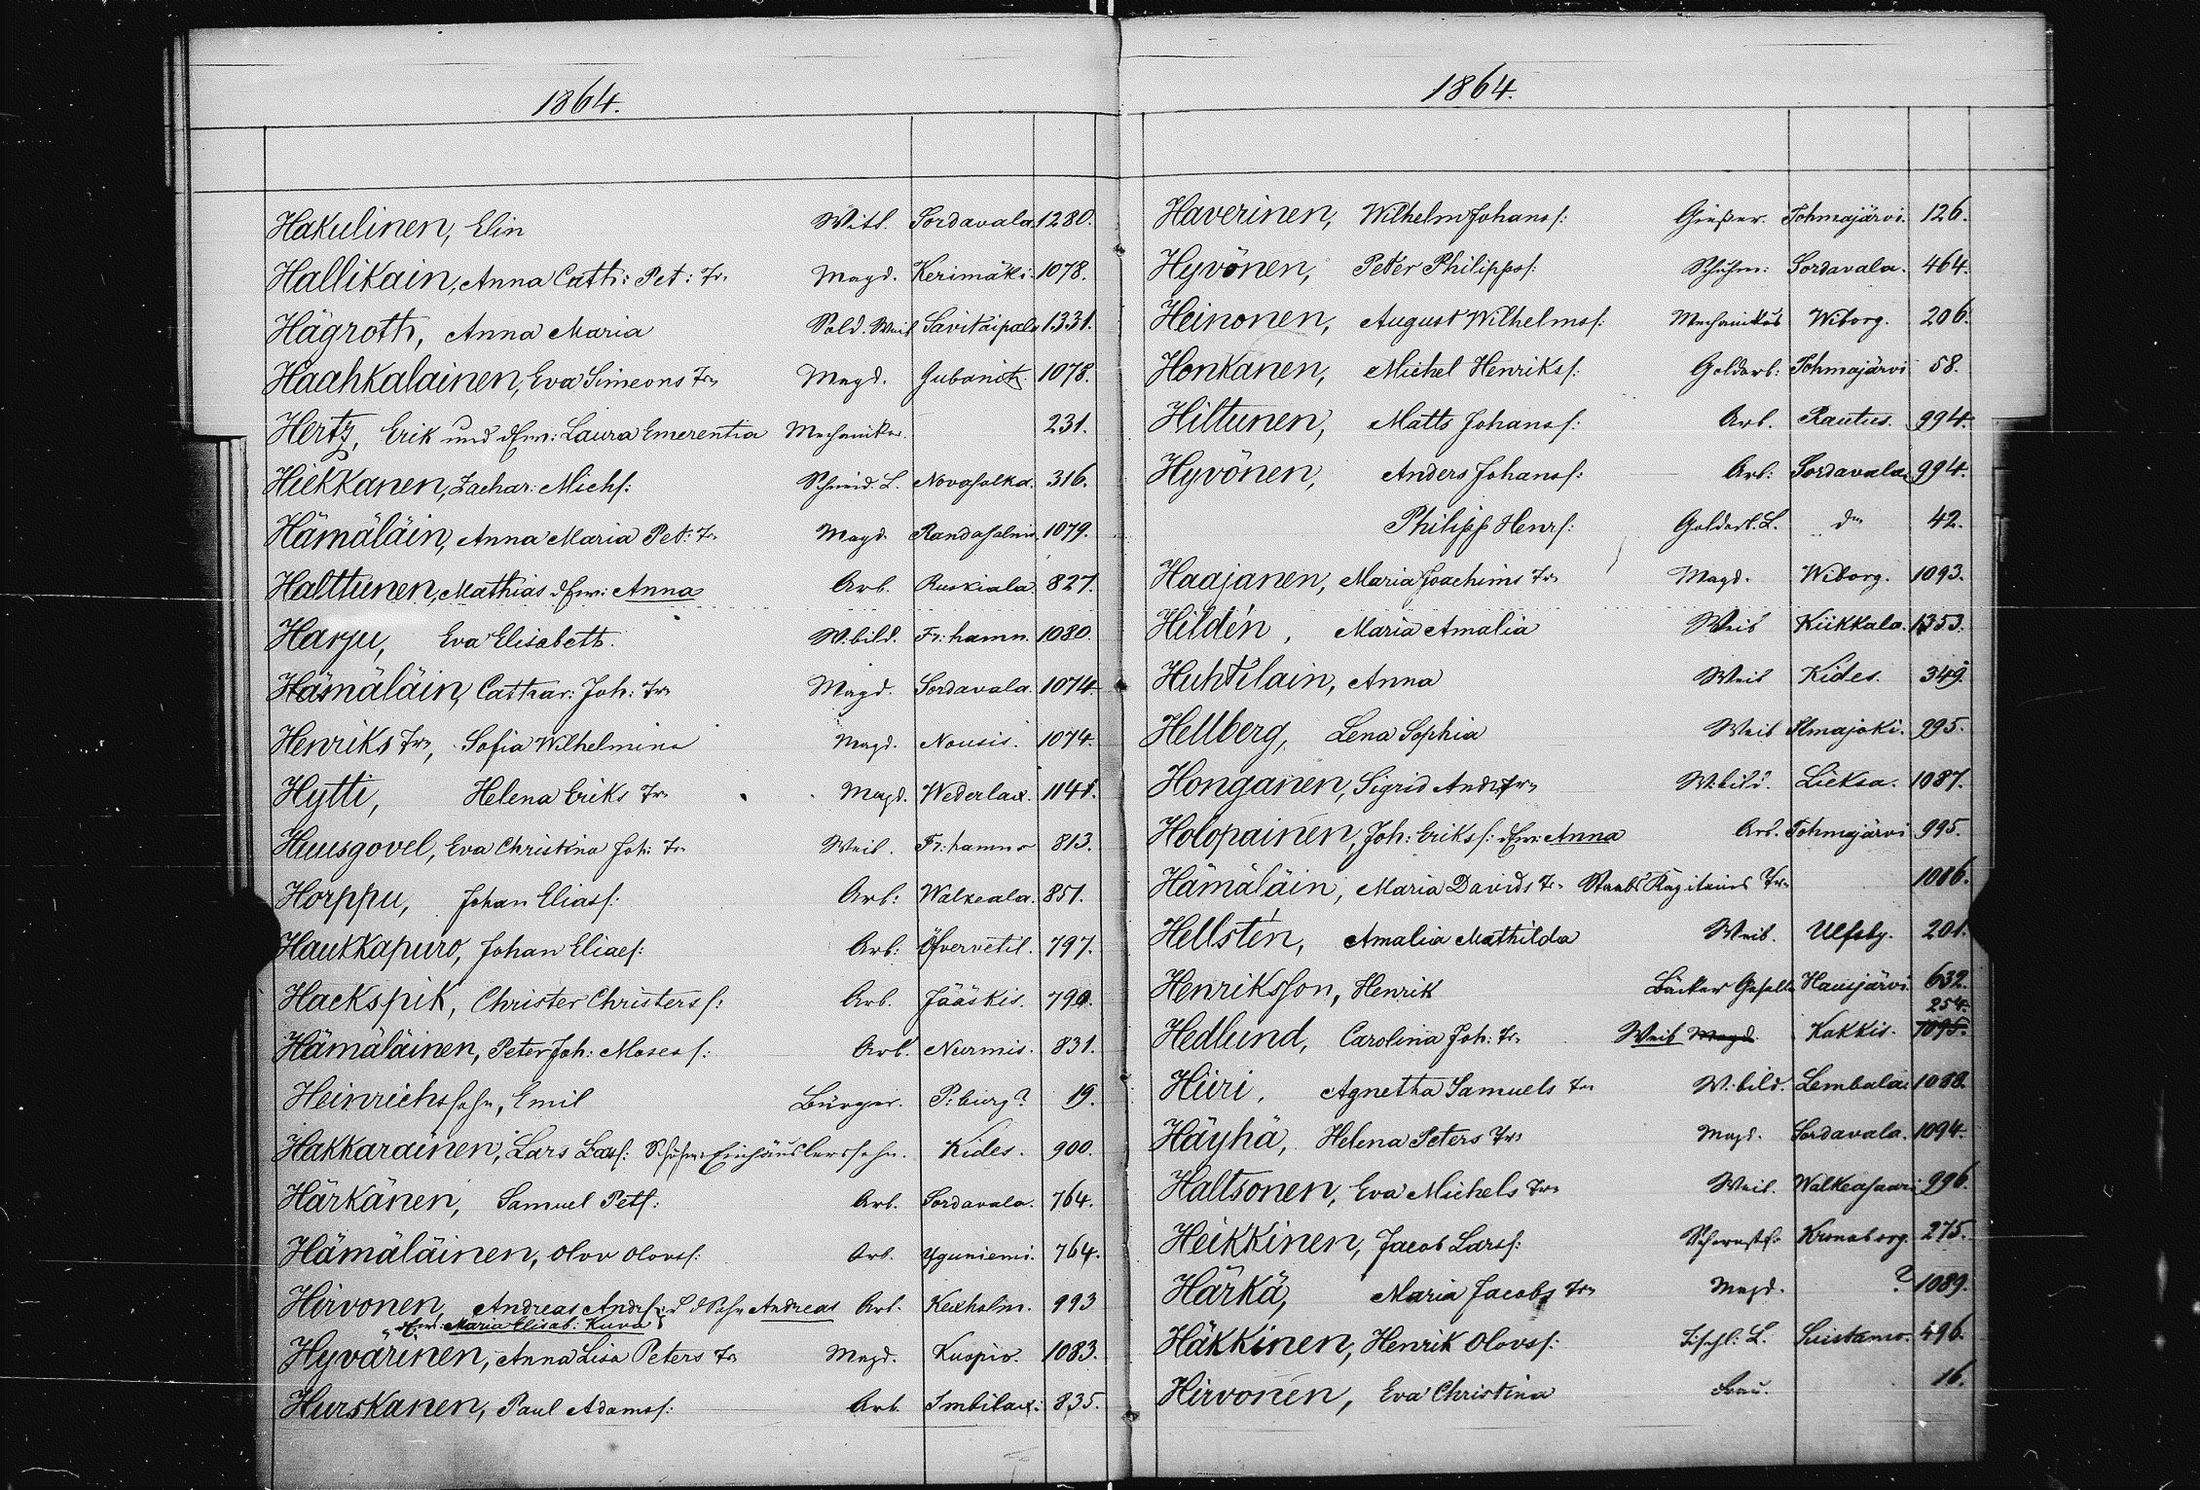 1864.
Hakulinen, Elin Witl. Sordavala. 1280.
Hallikain, Anna Cath: Pet: Tr. Magd. Kerimäki. 1078.
Hägroth, Anna Maria Sold. Weib Savitaipala 1331.
Haahkalainen, Eva Simeons Tr. Magd. Gubanitz 1078.
Hertz, Erik und Laura Emerentia Mechaniker. 231.
Hiekkanen, Zachar: Michs: Schmid. L. 316.
Hämäläin, Anna Maria Pet: Tr. Magd Randasalmi. 1079.
Halttunen, Mathias Anna Arb. Ruskiala. 827.
Harju, Eva Elisabeth. W.bild. Fr: hamn. 1080.
Hämäläin, Cathar: Joh: Tr. Magd. Sordavala. 1074.
Henriks Tr., Sofia Wilhelmina Magd. Nousis. 1074.
Hytti, Helena Eriks Tr. Magd. Wederlax.
Huusgovel, Eva Christina Joh: Tr. Weib. Fr: hamn 813.
Horppu, Johan Eliass: Arb: Walkeala. 851.
Haukkapuro, Johan Elias: Arb: Öfvervetil. 797.
Hackspik, Christer Christers s: Arb. Jääskis. 790.
Hämäläinen, Peter Joh: Moses s: Arb. Nurmis. 831.
Heinrichssohn, Emil Bürger. P: burg? 19.
Hakkarainen, Lars Lars: Einhäuslerssohn. Kides. 900.
Härkänen, Samuel Pets: Arb. Sordavala. 764.
Hämäläinen, Olov Olovss: Arb. Uguniemi. 764.
Hirvonen, Andreas Anders: Sohn Andreas Arb. Kexholm. 993
Maria Elisab: Kuva
Hyvärinen, Anna Lisa Peters Tr. Magd. Kuopio. 1083.
Hurskanen, Paul Adamss: Arb. Imbilax: 835.
1864.
Haverinen, Wilhelm Johanss: Gießer. Tohmajärvi. 126.
Hyvönen, Peter Philipps: Schuhm: Sordavala. 464.
Heinonen, August Wilhelmss: Mechanikus Wiborg. 206.
Honkanen, Michel Henrikss: Goldarb: Tohmajärvi 58.
Hiltunen, Matts Johanss: Arb. Rautus. 994.
Hyvönen, Anders Johanss: Arb: Sordavala 994.
Philipp Henrs: Goldarb. L. do 42.
Haajanen, Maria Joachims Tr. Magd. Wiborg. 1093.
Hildén, Maria Amalia Weib Kiikkala. 1353.
Huhtilain, Anna Weib Kides. 349.
Hellberg, Lena Sophia Weib Ilmajoki. 995.
Honganen, Sigrid Anders Tr. W.bild. Lieksa. 1087.
Holopainen, Joh: Erikss: Anna Arb. Tohmajärvi 995.
Hämäläin, Maria Davids Tr. Staabs Kapitains Tr. 1086.
Hellstén, Amalia Mathilda Weib. Ulfsby. 201.
Henriksson, Henrik Bäcker Geselle Haujärvi. 632.
254.
Hedlund, Carolina Joh: Tr. Weib Magd. Kakkis. 1095.
Hiiri, Agnetha Samuels Tr. W.bild. Lembala 1088.
Häyhä, Helena Peters Tr. Magd. Sordavala. 1094.
Haltsonen, Eva Michels Tr. Weib. Walkeasaari 996.
Heikkinen, Jacob Larss: Schornstf. Kronoborg. 275.
Härkä, Maria Jacobs Tr. Magd. ? 1089.
Häkkinen, Henrik Olovss: Tischl: L. Suistamo. 496.
Hirvonen, Eva Christina Frau. 16.